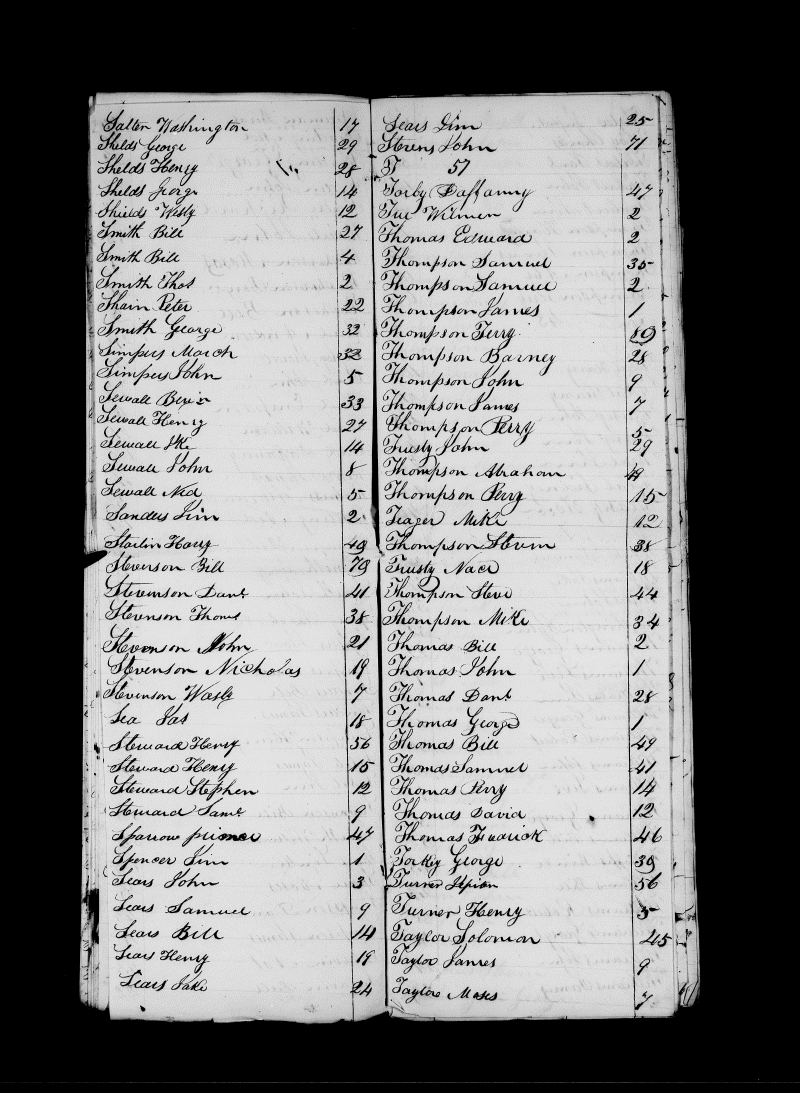 Salter Washington 17
Shelds George 29
Shelds Henry 28
Shelds George 14
Shields Wesly 12
Smith Bill 27
Smith Bill 4
Smith Thos 2
Shain Peter 22
Smith George 32
Simpers March 32
Simpers John 5
Sewall 33
Sewall Henry 27
Sewall Ike 14
Sewall John 8
Sewall Ned 5
Sanders Jim 2
Starlin Harry 49
Steverson Bill 79
Stevenson Danl 41
Stevenson Thoms 38
Stevenson John 21
Stevenson Nicholas 19
Stevenson Wasle 7
Sea Jas 18
Steward Henry 56
Steward Henry 15
Steward Stephen 12
Steward Saml 9
Sparrow primer 47
Spencer Jim 1
Sears John 3
Sears Samuel 9
Sears Bill 14
Sears Henry 19
Sears Jake 24
Sears Jim 25
Stevens John 71
T 57
Torby Daffanny 47
Tue Wilmen 2
Thomas Edward 2
Thompson Samuel 35
Thompson Samuel 2
Thompson James 1
Thompson Terry 89
Thompson Barney 28
Thompson John 9
Thompson James 7
Thompson Perry 5
Trusty John 29
Thompson Abraham 49
Thompson Perry 15
Teager Mike 12
Thompson Steven 38
Trusty Nace 18
Thompson Steve 44
Thompson Mike 34
Thomas Bill 2
Thomas John 1
Thomas Danl 28
Thomas George 1
Thomas Bill 49
Thomas Samuel 41
Thomas Perry 14
Thomas David 12
Thomas Fredrick 46
Torkey George 39
Turner 56
Turner Henry 5
Taylor Solomon 45
Taylor James 9
Taylor Moses 7